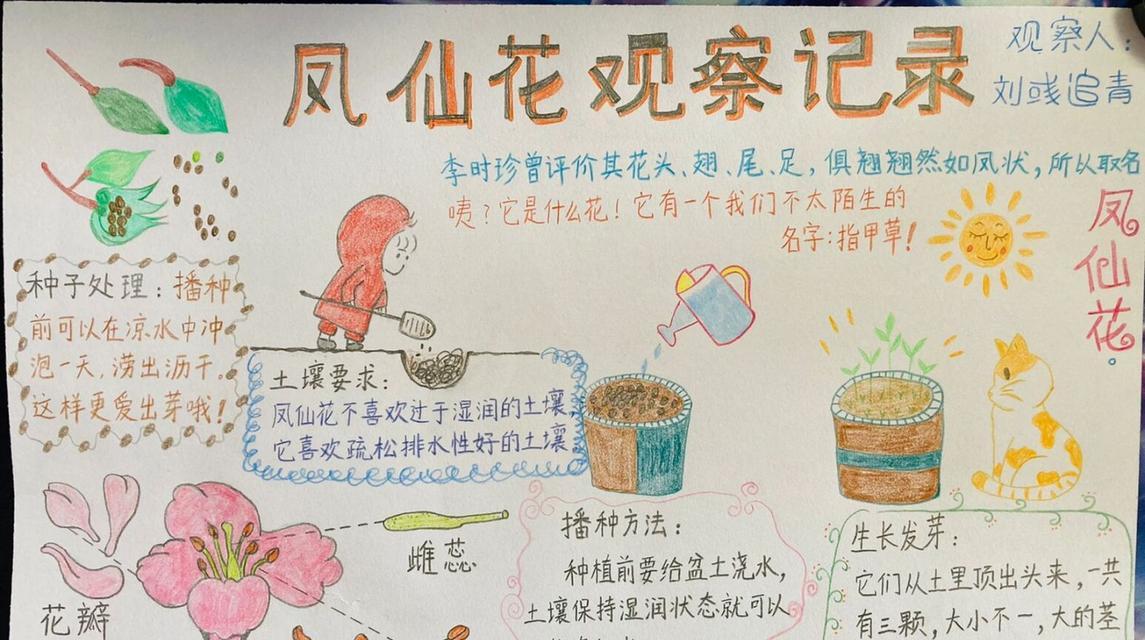 凤仙花观察记录
观察人：
刘彧追青
李时珍曾评价其花头、翅、尾、足，俱翘翘然如凤状，所以取名
凤仙花。
咦？它是什么花！它有一个我们不太陌生的
名字：指甲草！
种子处理：播种
前可以在凉水中冲
泡一天，涝出沥干。
这样更爱出芽哦！
土壤要求：
凤仙花不喜欢过于湿润的土壤，
它喜欢疏松排水性好的土壤
雌蕊
花瓣
播种方法：
种植前要给盆土浇水，
土壤保持湿润状态就可以
生长发芽：
它们从土里顶出头来，一共
有三颗，大小不一，大的茎